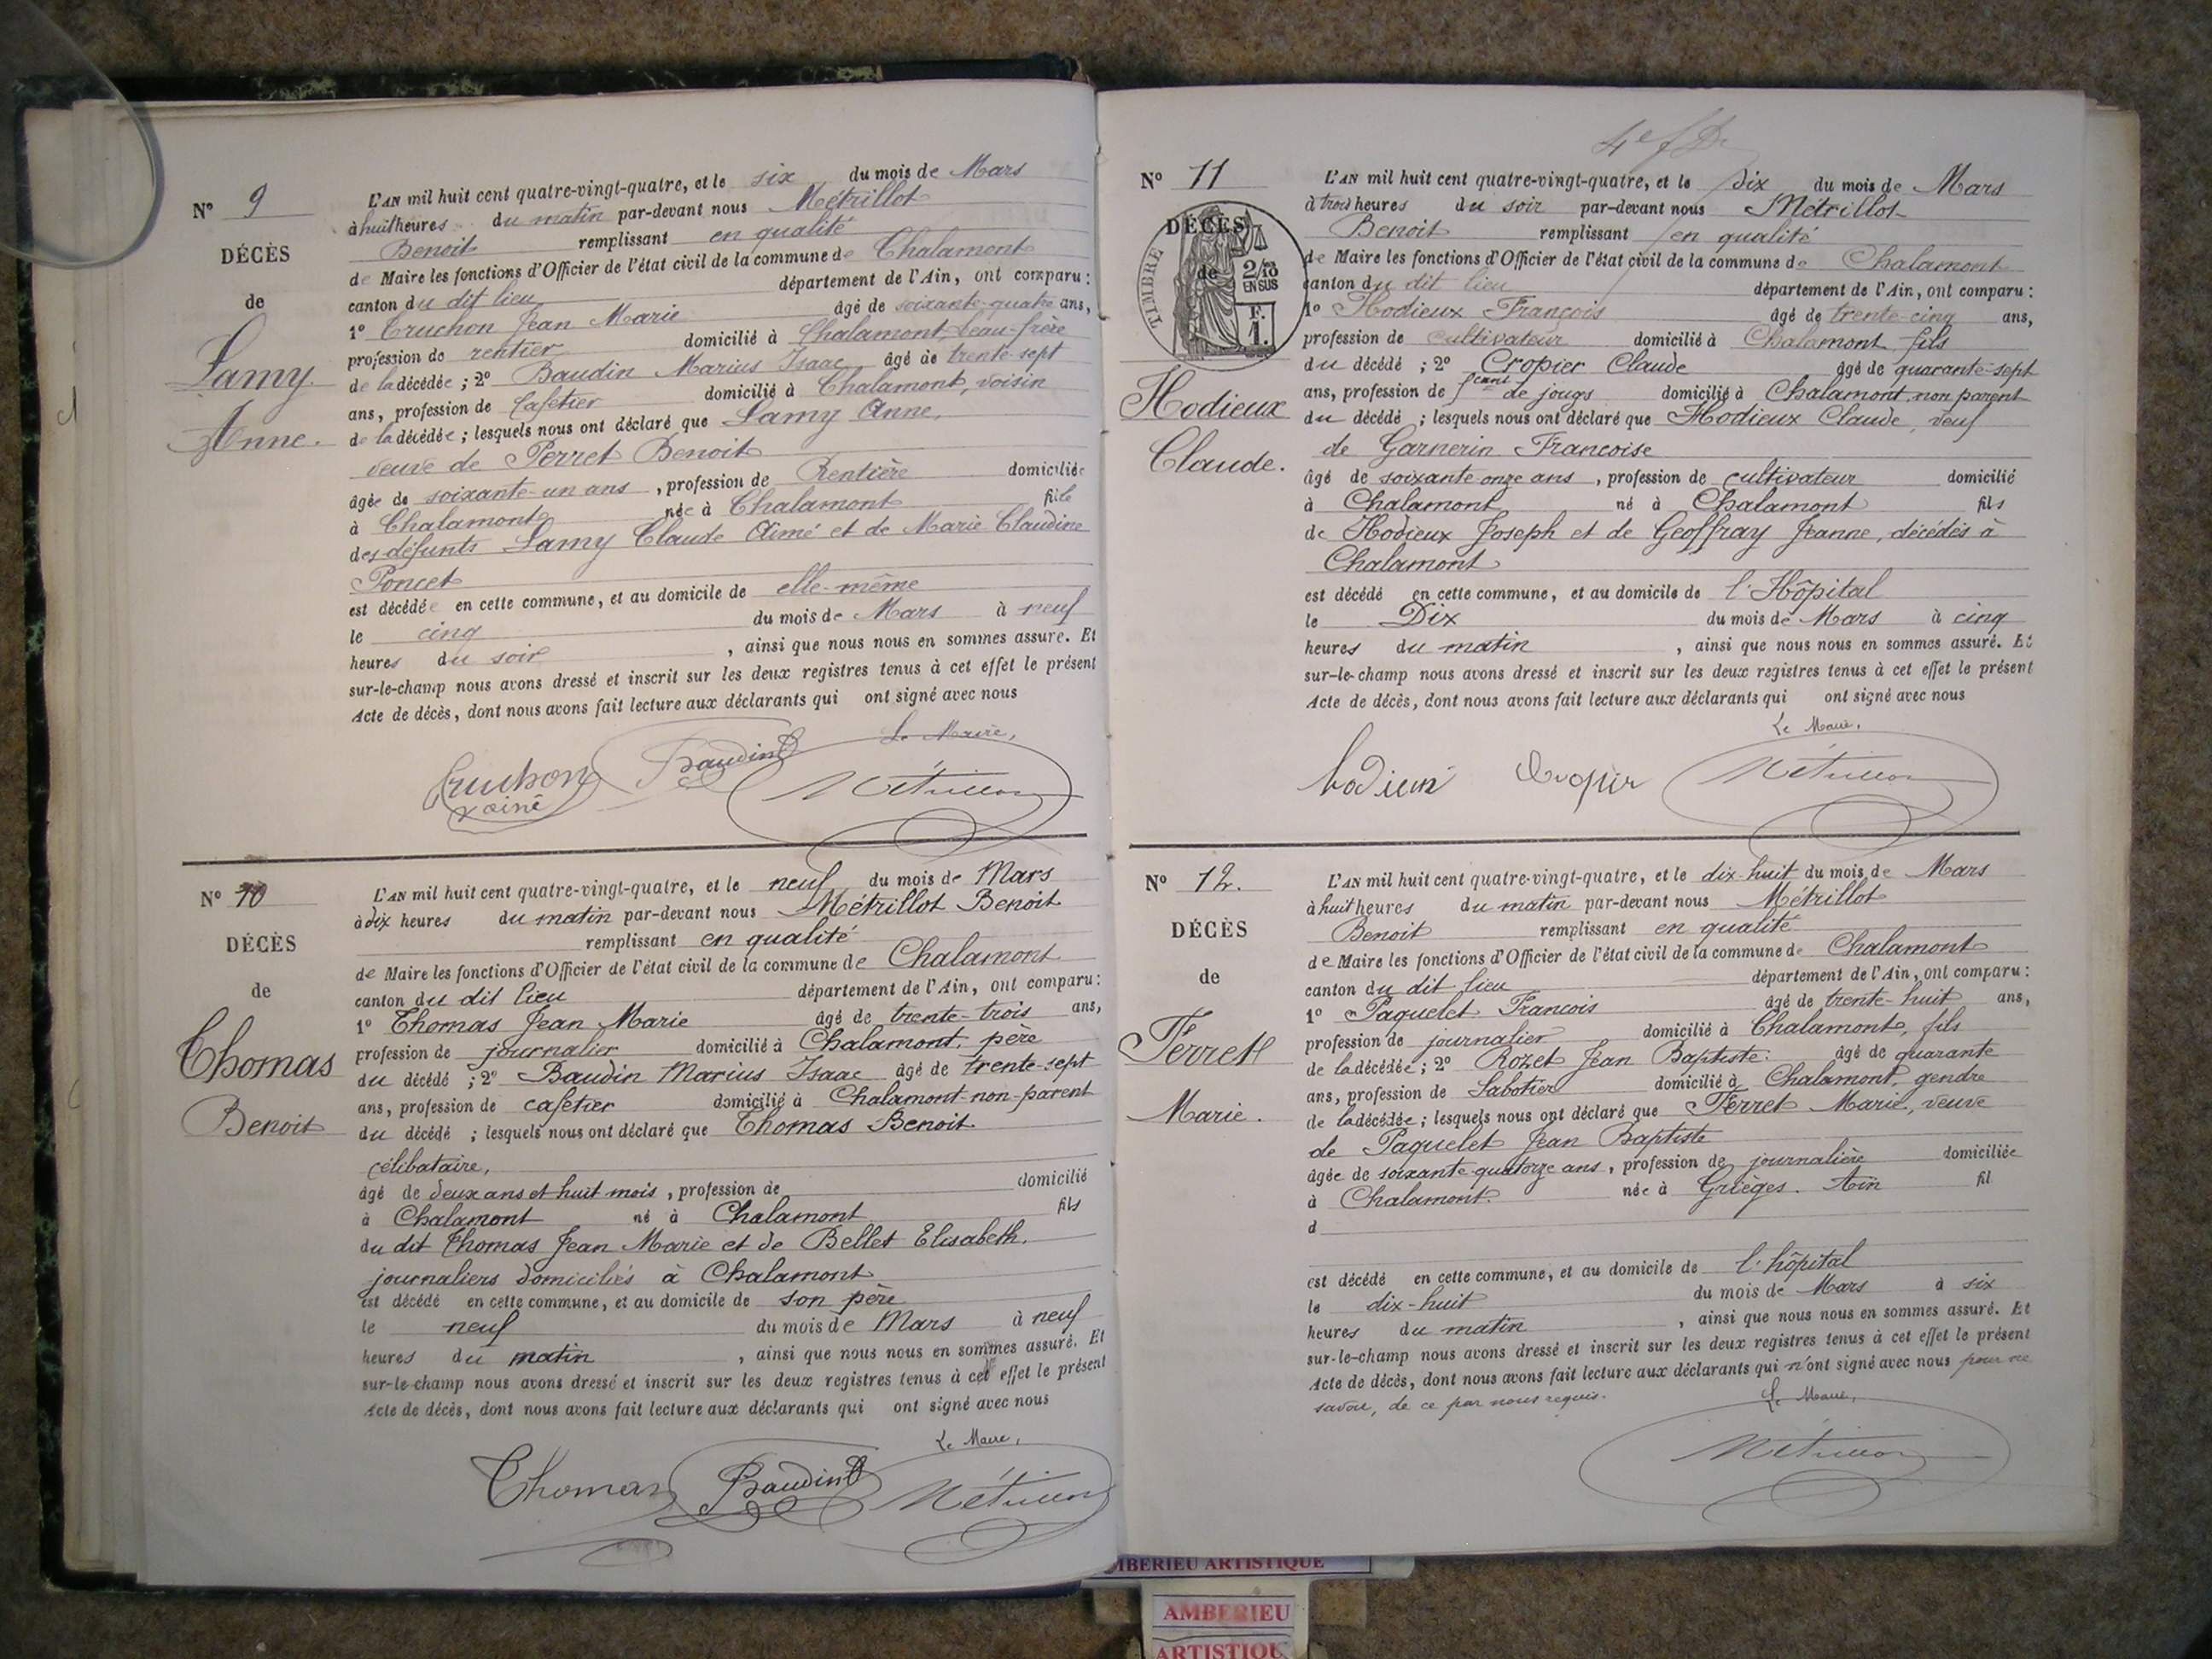 N° 9
DÉCÈS
de
Lamy
Anne.
L'AN mil huit cent quatre-vingt-quatre, et le six du mois de Mars
à huit heures du matin par-devant nous Métrillot
Benoit remplissant en qualité
de Maire les fonctions d'Officier de l'état civil de la commune de Chalamont
canton du dit lieu département de l'Ain, ont comparu :
1° Truchon Jean Marie âgé de soixante-quatre ans,
profession de rentier domicilié à Chalamont, beau-frère
de la décédée ; 2° Baudin Marius Isaac âgé de trente-sept
ans, profession de Cafetier domicilié à Chalamont, voisin
de la décédée ; lesquels nous ont déclaré que Lamy Anne,
veuve de Perret Benoit
âgée de soixante-un ans, profession de Rentière domiciliée
à Chalamont née à Chalamont fille
des défunts Lamy Claude Aimé et de Marie Claudine
Poncet
est décédée en cette commune, et au domicile de elle-même
le cinq du mois de Mars à neuf
heures du soir, ainsi que nous nous en sommes assuré. Et
sur-le-champ nous avons dressé et inscrit sur les deux registres tenus à cet effet le présent
Acte de décès, dont nous avons fait lecture aux déclarants qui ont signé avec nous
Le Maire,
Truchon Baudin Métrillot
ainé
N° 10
DÉCÈS
de
Thomas
Benoit
L'AN mil huit cent quatre-vingt-quatre, et le neuf du mois de Mars
à dix heures du matin par-devant nous Métrillot Benoit
remplissant en qualité
de Maire les fonctions d'Officier de l'état civil de la commune de Chalamont
canton du dit lieu département de l'Ain, ont comparu :
1° Thomas Jean Marie âgé de trente-trois ans,
profession de journalier domicilié à Chalamont, père
du décédé ; 2° Baudin Marius Isaac âgé de trente-sept
ans, profession de cafetier domicilié à Chalamont-non-parent
du décédé ; lesquels nous ont déclaré que Thomas Benoit
célibataire,
âgé de deux ans et huit mois, profession de domicilié
à Chalamont né à Chalamont fils
du dit Thomas Jean Marie et de Bellet Elisabeth.
journaliers domiciliés à Chalamont
est décédé en cette commune, et au domicile de son père
le neuf du mois de Mars à neuf
heures du matin, ainsi que nous nous en sommes assuré. Et
sur-le-champ nous avons dressé et inscrit sur les deux registres tenus à cet effet le présent
Acte de décès, dont nous avons fait lecture aux déclarants qui ont signé avec nous
Le Maire,
Thomas Baudin Métrillot
N° 11
DÉCÈS
de
TIMBRE
2/10
EN SUS
F.
1.
Hodieux
Claude.
L'AN mil huit cent quatre-vingt-quatre, et le dix du mois de Mars
à trois heures du soir par-devant nous Métrillot
Benoit remplissant en qualité
de Maire les fonctions d'Officier de l'état civil de la commune de Chalamont
canton du dit lieu département de l'Ain, ont comparu :
1° Hodieux François âgé de trente-cinq ans,
profession de cultivateur domicilié à Chalamont fils
du décédé ; 2° Cropier Claude âgé de quarante-sept
ans, profession de de jougs domicilié à Chalamont, non parent
du décédé ; lesquels nous ont déclaré que Hodieux Claude, veuf
de Garnerin Francoise
âgé de soixante onze ans, profession de cultivateur domicilié
à Chalamont né à Chalamont fils
de Hodieux Joseph et de Geoffray Jeanne, décédés à
Chalamont
est décédé en cette commune, et au domicile de l'Hôpital
le Dix du mois de Mars à cinq
heures du matin, ainsi que nous nous en sommes assuré. Et
sur-le-champ nous avons dressé et inscrit sur les deux registres tenus à cet effet le présent
Acte de décès, dont nous avons fait lecture aux déclarants qui ont signé avec nous
Le Maire,
hodieux Cropier Métrillot
N° 12.
DÉCÈS
de
Ferret
Marie.
L'AN mil huit cent quatre-vingt-quatre, et le dix-huit du mois de Mars
à huit heures du matin par-devant nous Métrillot
Benoit remplissant en qualité
de Maire les fonctions d'Officier de l'état civil de la commune de Chalamont
canton du dit lieu département de l'Ain, ont comparu :
1° Paquelet Francois âgé de trente-huit ans,
profession de journalier domicilié à Chalamont, fils
de la décédée ; 2° Rozet Jean Baptiste. âgé de quarante
ans, profession de Sabotier domicilié à Chalamont, gendre
de la décédée ; lesquels nous ont déclaré que Ferret Marie, veuve
de Paquelet Jean Baptiste
âgée de soixante-quatorze ans, profession de journalière domiciliée
à Chalamont. née à Grièges. Ain fil
d
est décédé en cette commune, et au domicile de l'hôpital
le dix-huit du mois de Mars à six
heures du matin, ainsi que nous nous en sommes assuré. Et
sur-le-champ nous avons dressé et inscrit sur les deux registres tenus à cet effet le présent
Acte de décès, dont nous avons fait lecture aux déclarants qui n'ont signé avec nous pour ne
savoir, de ce par nous requis.
Le Maire,
Métrillot
AMBERIEU ARTISTIQUE
AMBERIEU
ARTISTIQUE